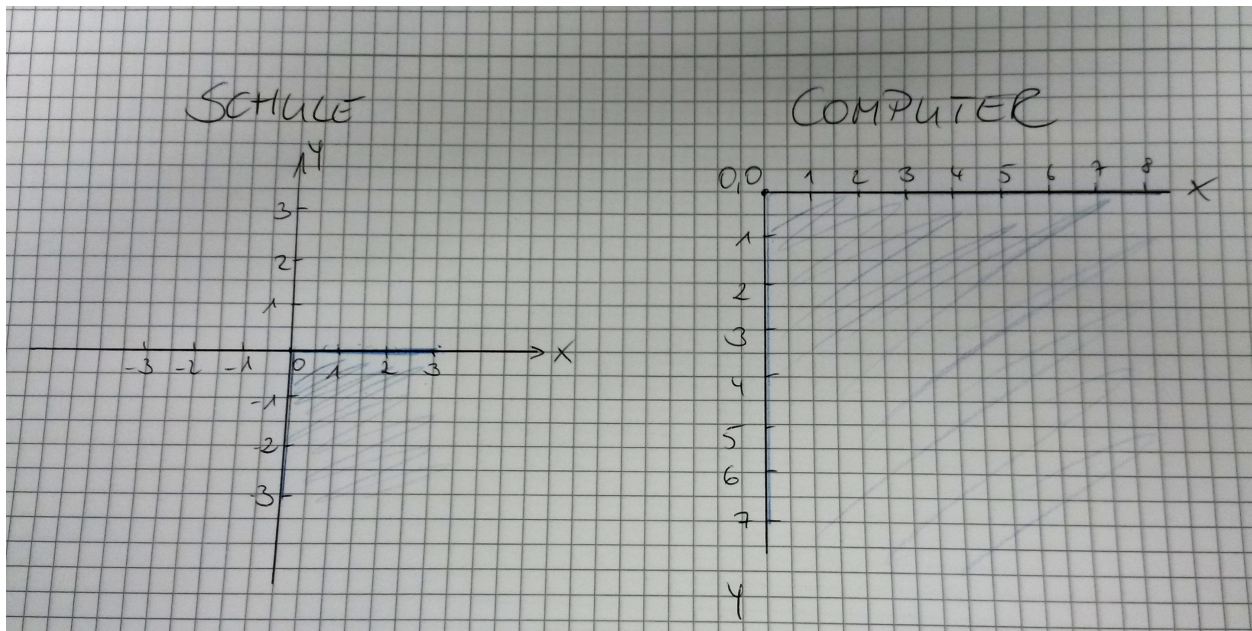 SCHULE
Y
3
2
1
-3 -2 -1 0 1 2 3 X
-1
-2
-3
COMPUTER
0,0 1 2 3 4 5 6 7 8 X
1
2
3
4
5
6
7
Y